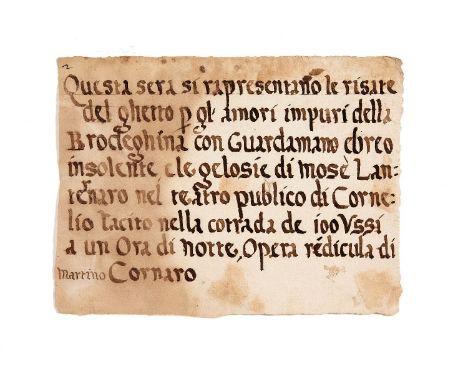 Questa sera si rapresentano le risate
del ghetto p gl' amori impuri della
Brodeghina con Guardamano ebreo
insolente e le gelosie di mosè Lan-
ternaro nel teatro publico di Corne-
lio tacito nella corrada de ioo Ussi
a un Ora di notte, Opera redicula di
martino Cornaro